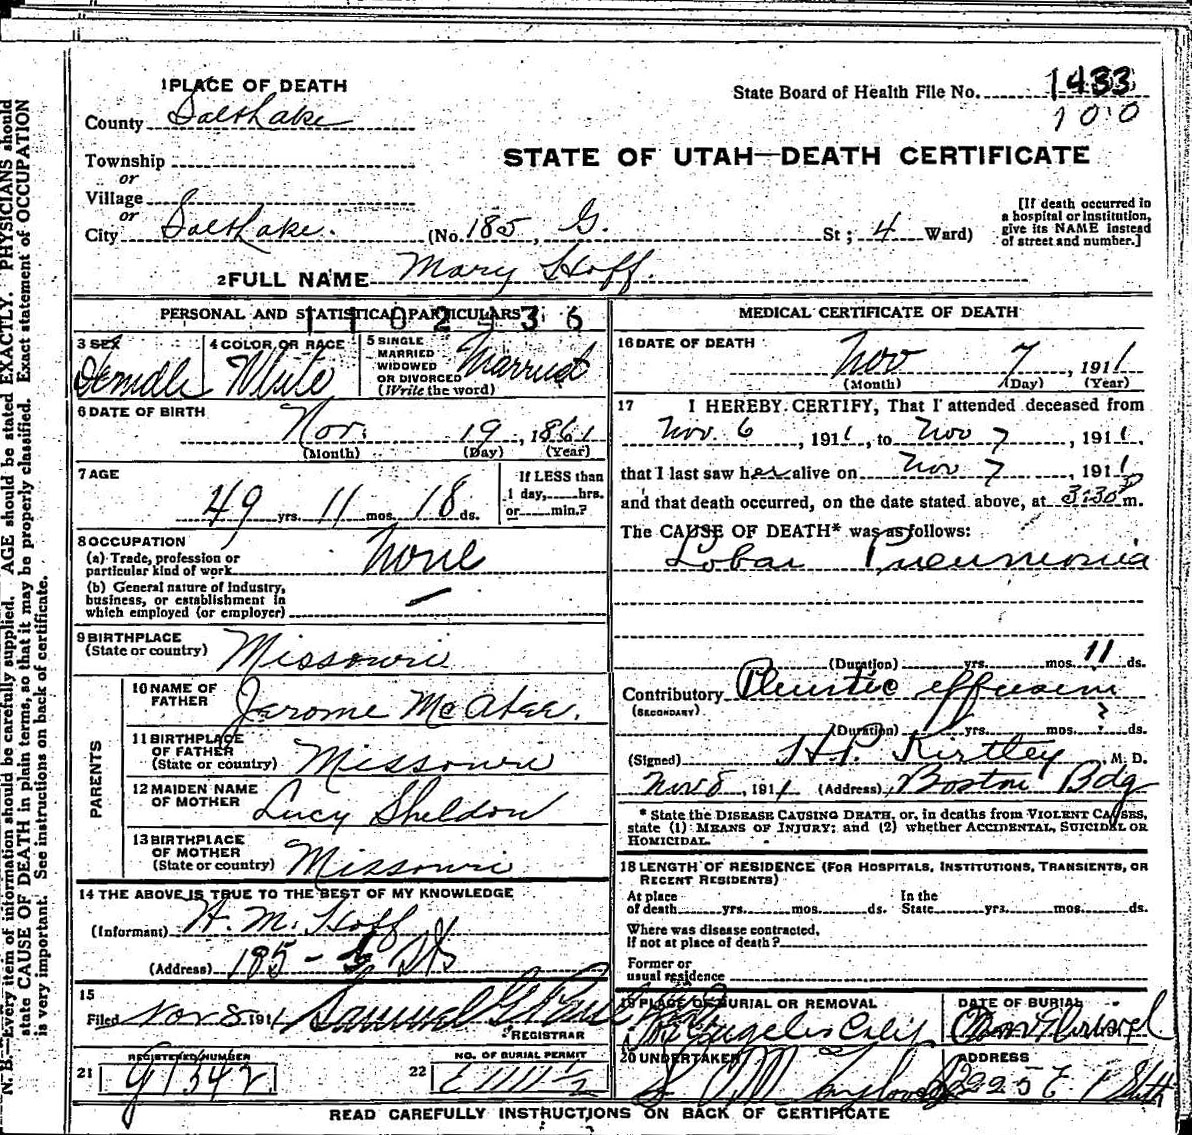 1 PLACE OF DEATH
County Salt Lake
Township
or
Village
or
City Salt Lake. (No. 185, G. St; 4 Ward)
State Board of Health File No. 1433
100
STATE OF UTAH—DEATH CERTIFICATE
[If death occurred in
a hospital or institution,
give its NAME instead
of street and number.]
2 FULL NAME Mary Hoff.
PERSONAL AND STATISTICAL PARTICULARS
3 SEX Female
4 COLOR OR RACE White
5 SINGLE
MARRIED
WIDOWED
OR DIVORCED
(Write the word) Married
6 DATE OF BIRTH
Nov. 19, 1861
(Month) (Day) (Year)
7 AGE
49 yrs. 11 mos. 18 ds.
If LESS than
1 day, hrs.
or min.?
8 OCCUPATION
(a) Trade, profession or
particular kind of work None
(b) General nature of industry,
business, or establishment in
which employed (or employer) —
9 BIRTHPLACE
(State or country) Missouri
PARENTS
10 NAME OF
FATHER Jerome McAtee.
11 BIRTHPLACE
OF FATHER
(State or country) Missouri
12 MAIDEN NAME
OF MOTHER Lucy Sheldon
13 BIRTHPLACE
OF MOTHER
(State or country) Missouri
14 THE ABOVE IS TRUE TO THE BEST OF MY KNOWLEDGE
(Informant) H. M. Hoff
(Address) 185 - St
15
Filed Nov 8 1911 Samuel G. Paul
REGISTRAR
REGISTERED NUMBER
21 G1342
NO. OF BURIAL PERMIT
22 E 1111 1/2
MEDICAL CERTIFICATE OF DEATH
16 DATE OF DEATH
Nov 7, 1911
(Month) (Day) (Year)
17 I HEREBY CERTIFY, That I attended deceased from
Nov. 6, 1911, to Nov 7, 1911,
that I last saw her alive on Nov 7, 1911
and that death occurred, on the date stated above, at 3:30 P m.
The CAUSE OF DEATH* was as follows:
Lobar Pneumonia
(Duration) yrs. mos. 11 ds.
Contributory Pleuritic effusion
(SECONDARY)
(Duration) yrs. mos. ? ds.
(Signed) H.P. Kirtley M. D.
Nov 8, 1911 (Address) Boston Bdg
* State the DISEASE CAUSING DEATH, or, in deaths from VIOLENT CAUSES,
state (1) MEANS OF INJURY; and (2) whether ACCIDENTAL, SUICIDAL OR
HOMICIDAL.
18 LENGTH OF RESIDENCE (FOR HOSPITALS, INSTITUTIONS, TRANSIENTS, OR
RECENT RESIDENTS)
At place
of death yrs. mos. ds.
In the
State yrs. mos. ds.
Where was disease contracted,
if not at place of death?
Former or
usual residence
19 PLACE OF BURIAL OR REMOVAL
Los Angeles Calif
DATE OF BURIAL
20 UNDERTAKER
S M Taylor
ADDRESS
225 E 1 Sth
READ CAREFULLY INSTRUCTIONS ON BACK OF CERTIFICATE
N. B.—Every item of information should be carefully supplied. AGE should be stated EXACTLY. PHYSICIANS should
state CAUSE OF DEATH in plain terms, so that it may be properly classified. Exact statement of OCCUPATION
is very important. See instructions on back of certificate.